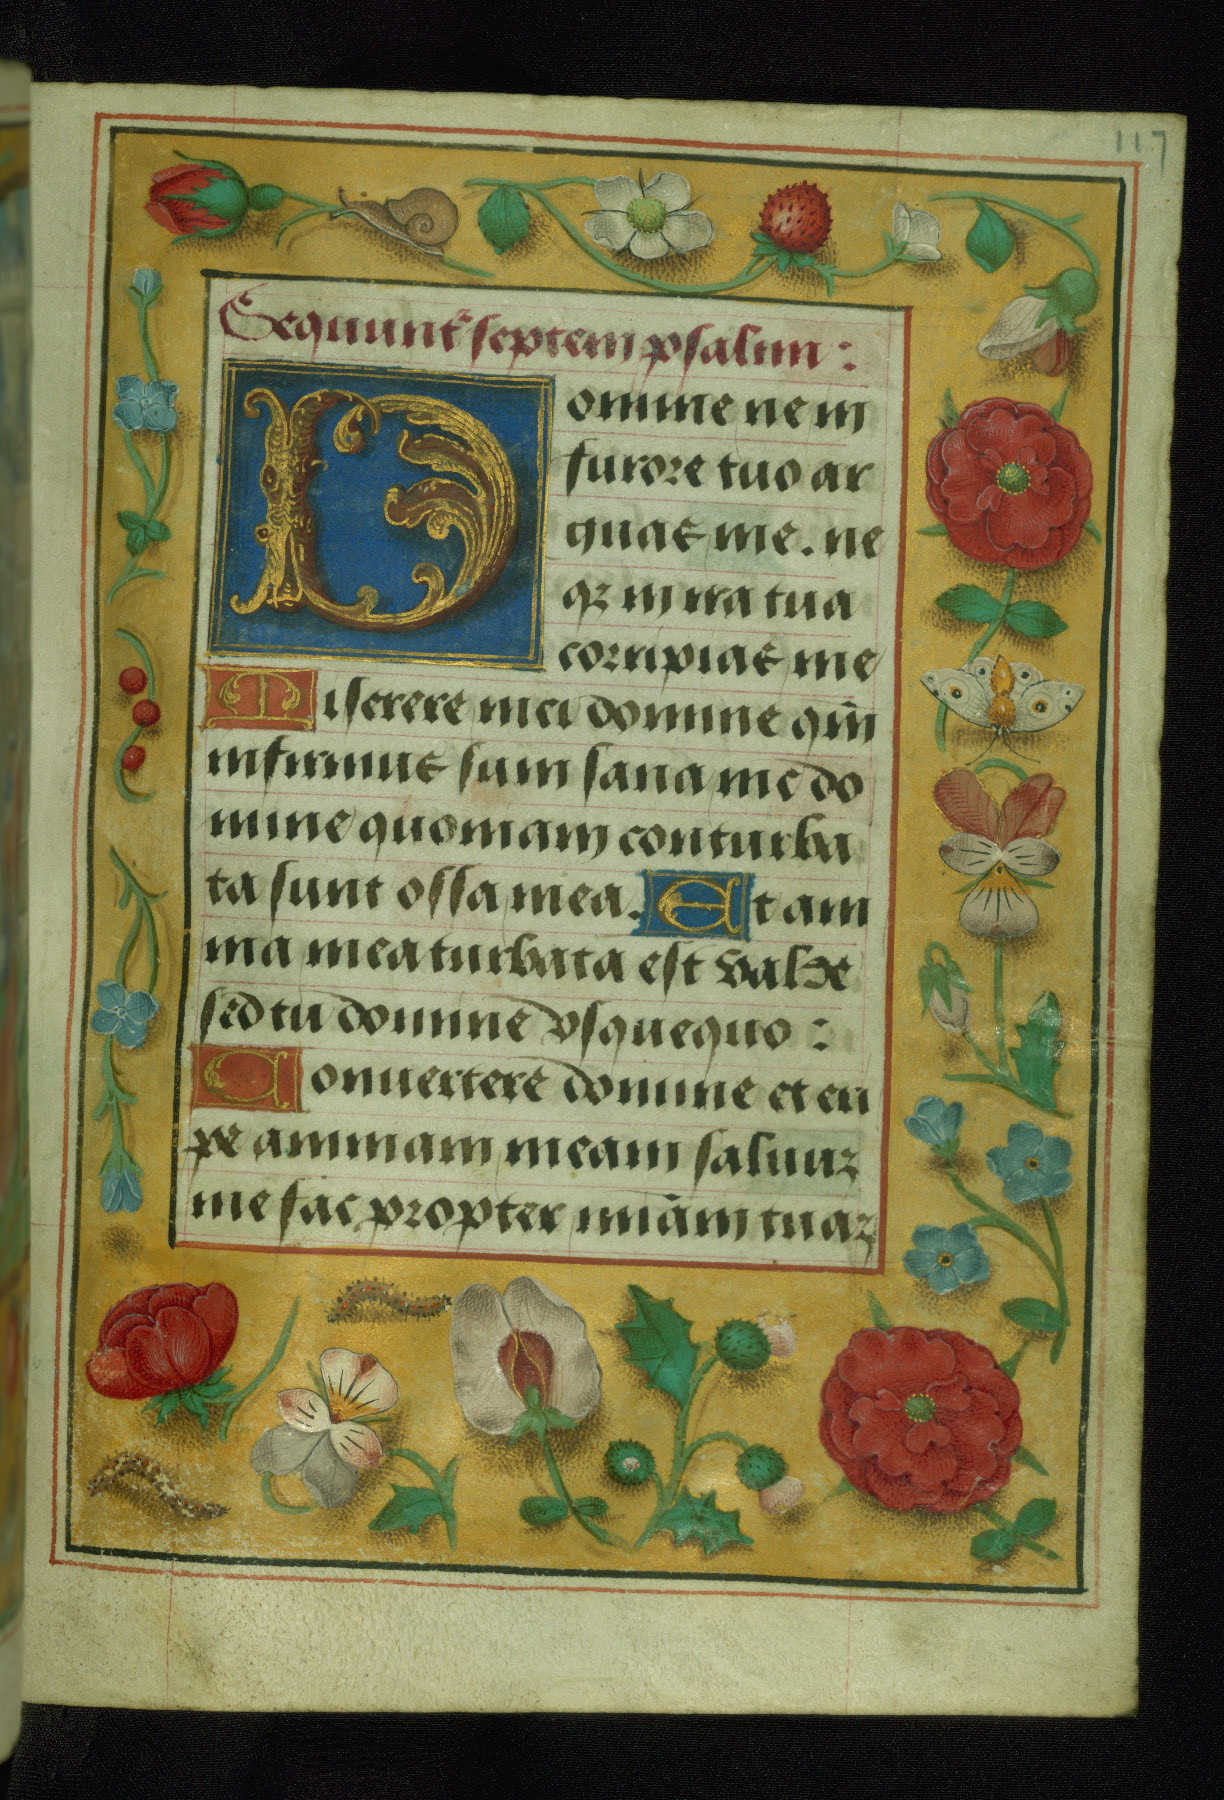 117
Sequunt͛ septem psalmi :
Domine ne in
furore tuo ar
guas me . ne
qꝫ in ira tua
corripias me
Miserere mei domine qm̄
infirmus sum sana me do
mine quoniam conturba
ta sunt ossa mea . Et ani
ma mea turbata est valde
sed tu domine vsquequo :
Conuertere domine et eri
pe animam meam saluuꝫ
me fac propter miām tuaꝫ